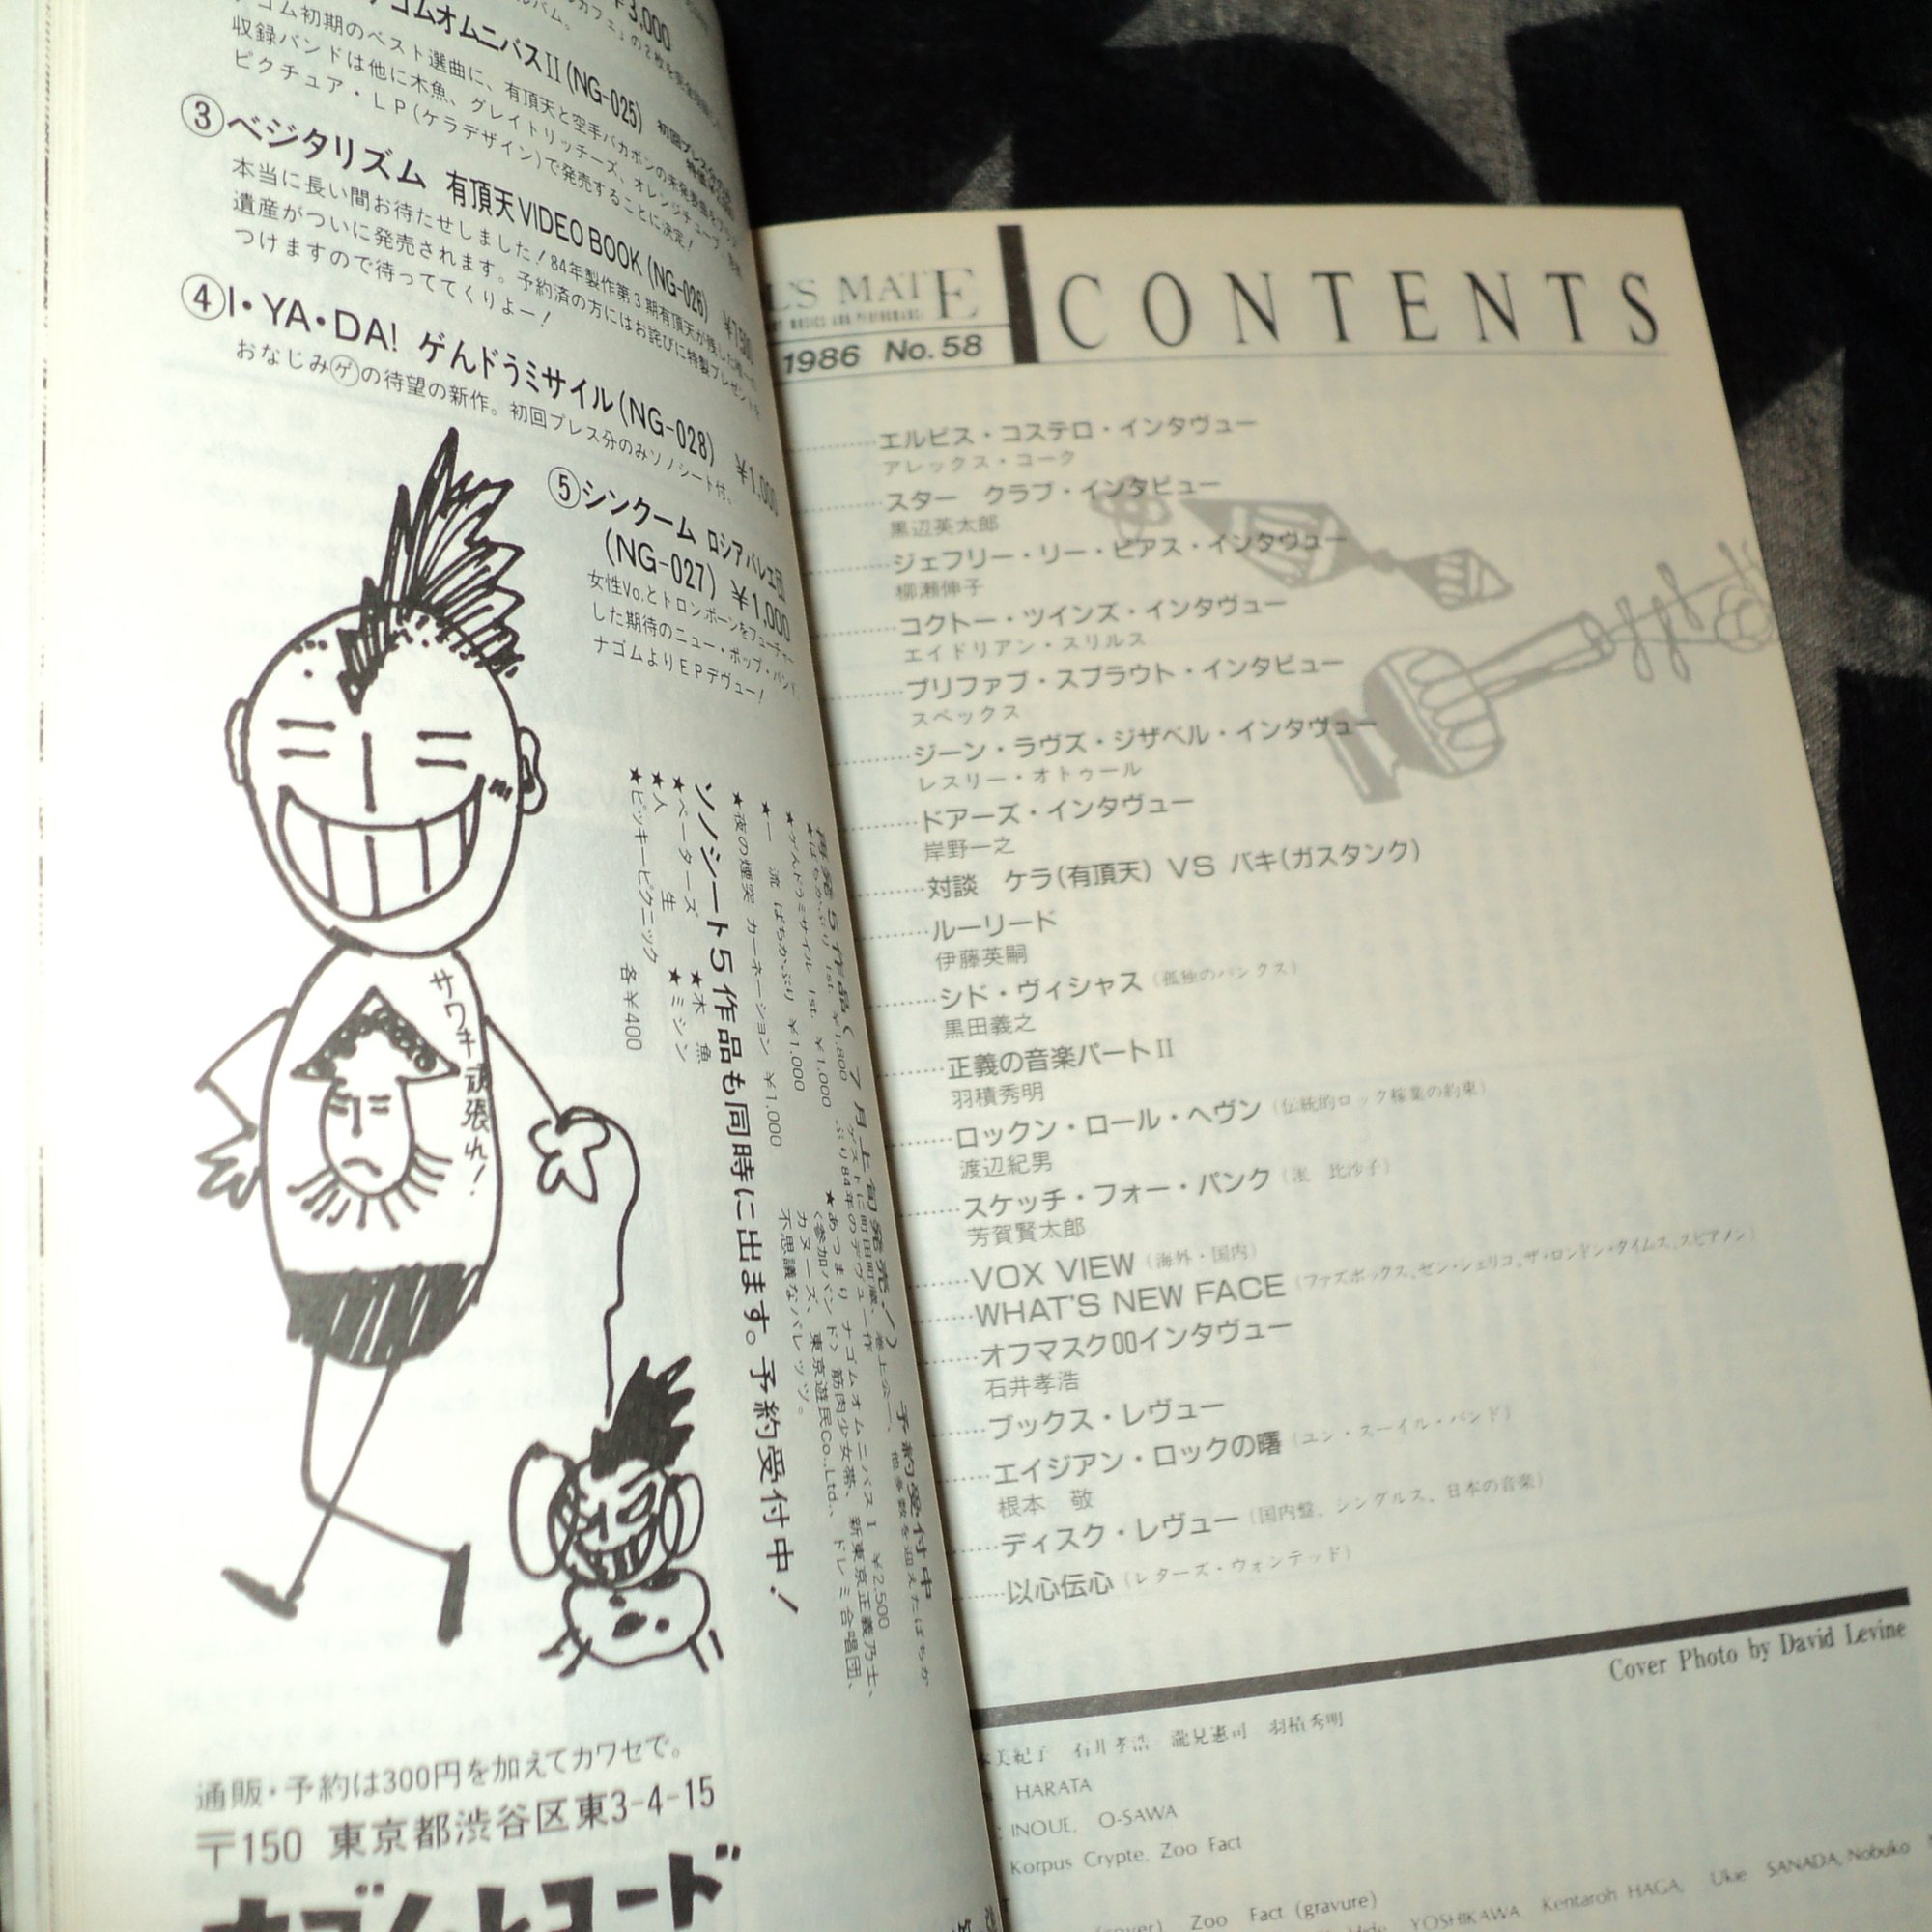 ¥3,000
ゴムオムニバスII(NG-025)
ゴム初期のベスト選曲に、有頂天と空手バカボンの未発表曲を
収録バンドは他に木魚、グレイトリッチーズ、オレンジチューブ、
ピクチュア・LP(ケラデザイン)で発売することに決定!
③ベジタリズム 有頂天VIDEO BOOK(NG-026) ¥7,500
本当に長い間お待たせしました!84年製作第3期有頂天が残した唯一の
遺産がついに発売されます。予約済の方にはお詫びに特製プレゼントを
つけますので待っててくりよー!
④I・YA・DA! ゲんドうミサイル(NG-028) ¥1,000
おなじみゲの待望の新作。初回プレス分のみソノシート付。
⑤シンクーム ロシアバレエ団
(NG-027) ¥1,000
女性Vo.とトロンボーンをフューチャー
した期待のニュー・ポップ・バンド、
ナゴムよりEPデヴュー!
サワキ頑張れ!
再発5作品(7月上旬発売!)予約受付中
★ばちかぶり 1st. ¥1,800
★ゲんドうミサイル 1st. ¥1,000
★一流 ばちかぶり ¥1,000
★夜の煙突 カーネーション ¥1,000
★あつまり ナゴムオムニバス1 ¥2,500
〈参加バンド〉筋肉少女帯、新東京正義乃士、
カヌーズ、東京遊民Co.,Ltd.、ドレミ合唱団、
不思議なバレッツ。
ソノシート5作品も同時に出ます。予約受付中!
★ペーターズ ★木魚
★人生 ★ミシン
★ピッキーピクニック 各¥400
通販・予約は300円を加えてカワセで。
〒150 東京都渋谷区東3-4-15
ナゴムレコード
L'S MATE
CONTENTS
1986 No.58
エルビス・コステロ・インタヴュー
アレックス・コーク
スター クラブ・インタビュー
黒辺英太郎
ジェフリー・リー・ピアス・インタヴュー
柳瀬伸子
コクトー・ツインズ・インタヴュー
エイドリアン・スリルス
プリファブ・スプラウト・インタビュー
スペックス
ジーン・ラヴズ・ジザベル・インタヴュー
レスリー・オトゥール
ドアーズ・インタヴュー
岸野一之
対談 ケラ(有頂天) VS バキ(ガスタンク)
ルーリード
伊藤英嗣
シド・ヴィシャス(孤独のパンクス)
黒田義之
正義の音楽パートII
羽積秀明
ロックン・ロール・ヘヴン(伝統的ロック稼業の約束)
渡辺紀男
スケッチ・フォー・パンク
芳賀賢太郎
VOX VIEW(海外・国内)
WHAT'S NEW FACE(ファズボックス、ゼン・シェリコ、ザ・ロンドン・タイムス、スピアメン)
オフマスク00インタヴュー
石井孝浩
ブックス・レヴュー
エイジアン・ロックの曙(ユン・スーイル・バンド)
根本 敬
ディスク・レヴュー(国内盤、シングルス、日本の音楽)
以心伝心(レターズ・ウォンテッド)
Cover Photo by David Levine
美紀子 石井孝浩 瀧見憲司 羽積秀明
HARATA
INOUE, O-SAWA
Korpus Crypte, Zoo Fact
Zoo Fact (gravure)
YOSHIKAWA Kentaroh HAGA, Ukie SANADA, Nobuko